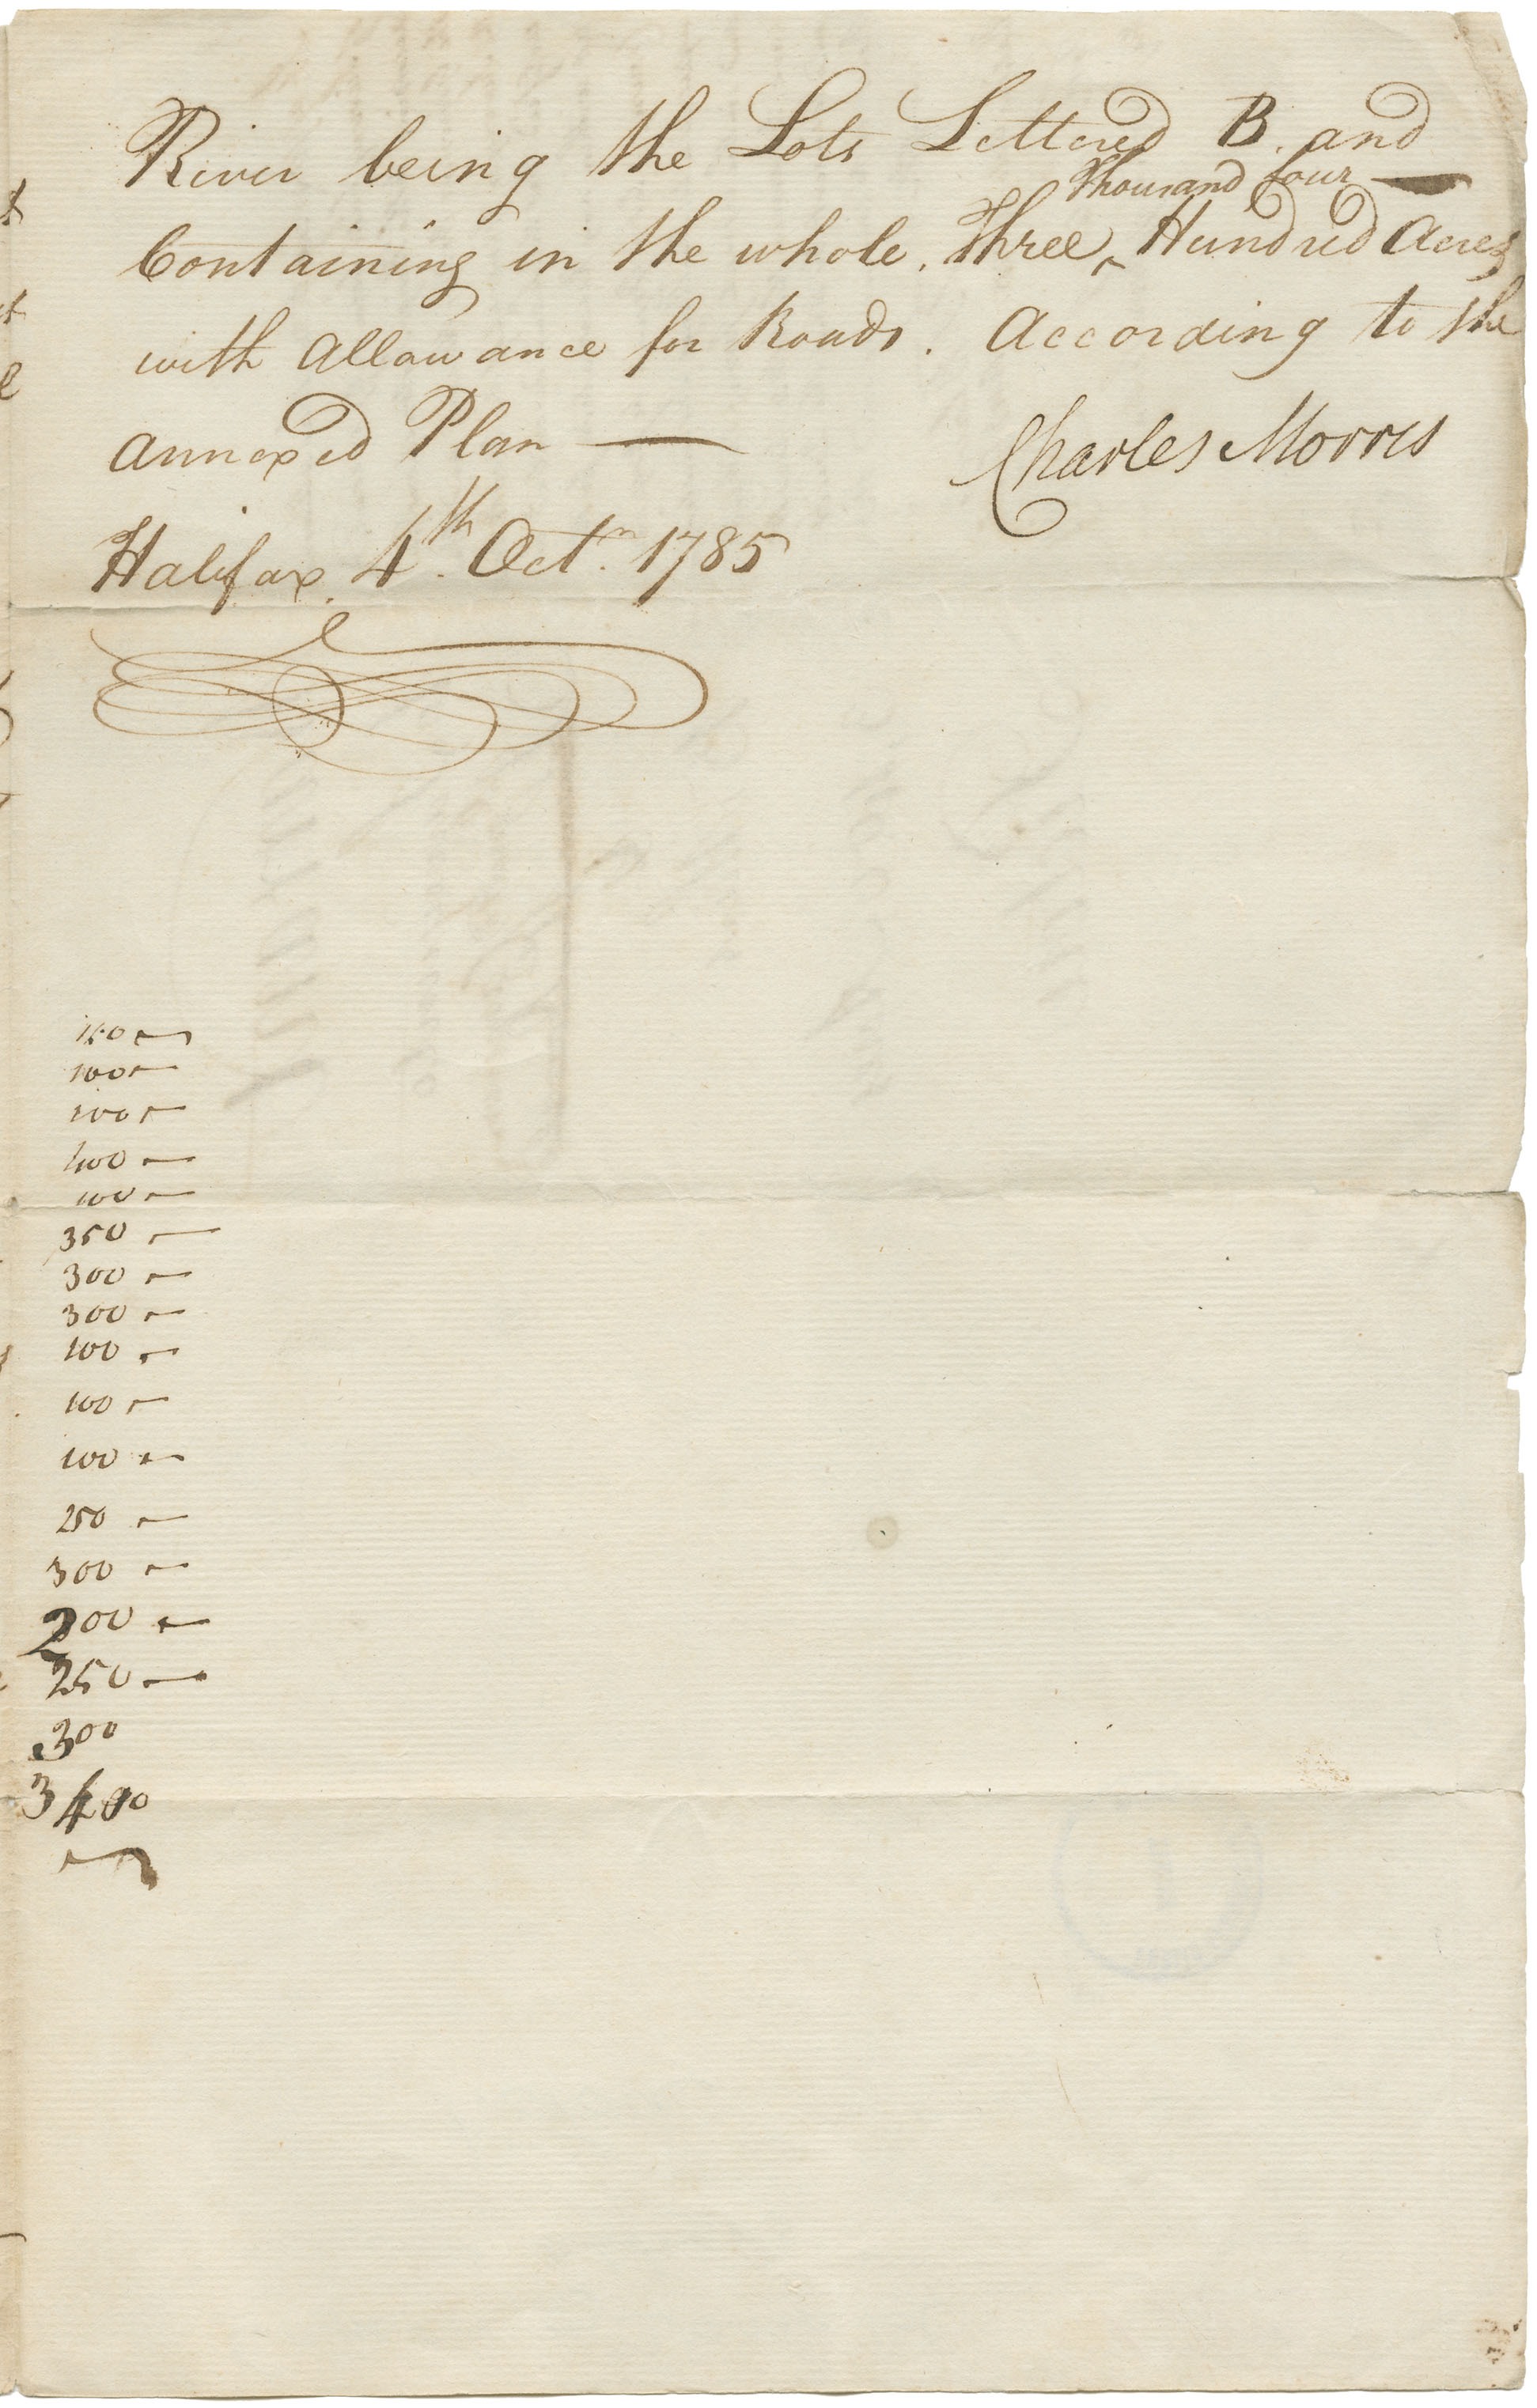 River being the Lots Lettered B. and
Thousand four —
Containing in the whole. Three ‸ Hundred Acres
with Allowance for Roads. According to the
Annexed Plan —
Charles Morris
Halifax 4th. Octr. 1785
100 —
100 —
100 —
100 —
350 —
300 —
300 —
100 —
100 —
100 —
250 —
300 —
200 —
250 —
300
3400